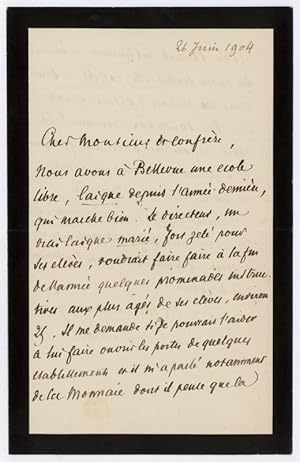 26 Juin 1904
Cher Monsieur et confrère,
Nous avons à Bellevue une ecole
libre, laïque depuis l'année dernière,
qui marche bien. Le directeur, un
vrai laïque marié, fort zelé pour
ses elèves, voudrait faire faire à la fin
de l'année quelques promenades instruc-
tives aux plus agés de ses elèves, environ
25. Il me demande si je pouvais l'aider
à lui faire ouvrir les portes de quelques
etablissements et il m'a parlé notamment
de la Monnaie dont il pense que la